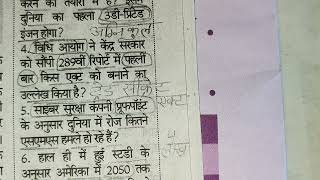 करने की तैयारी में है? इससे
दुनिया का पहला 3डी-प्रिंटेड
इंजन होगा? अग्निकुल
4. विधि आयोग ने केंद्र सरकार
को सौंपी 289वीं रिपोर्ट में पहली
बार किस एक्ट को बनाने का
उल्लेख किया है? ट्रेड सीक्रेट
एक्ट
5. साइबर सुरक्षा कंपनी प्रूफपॉइंट
के अनुसार दुनिया में रोज कितने
एसएमएस हमले हो रहे हैं? 4 लाख
6. हाल ही में हुई स्टडी के
अनुसार अमेरिका में 2050 तक